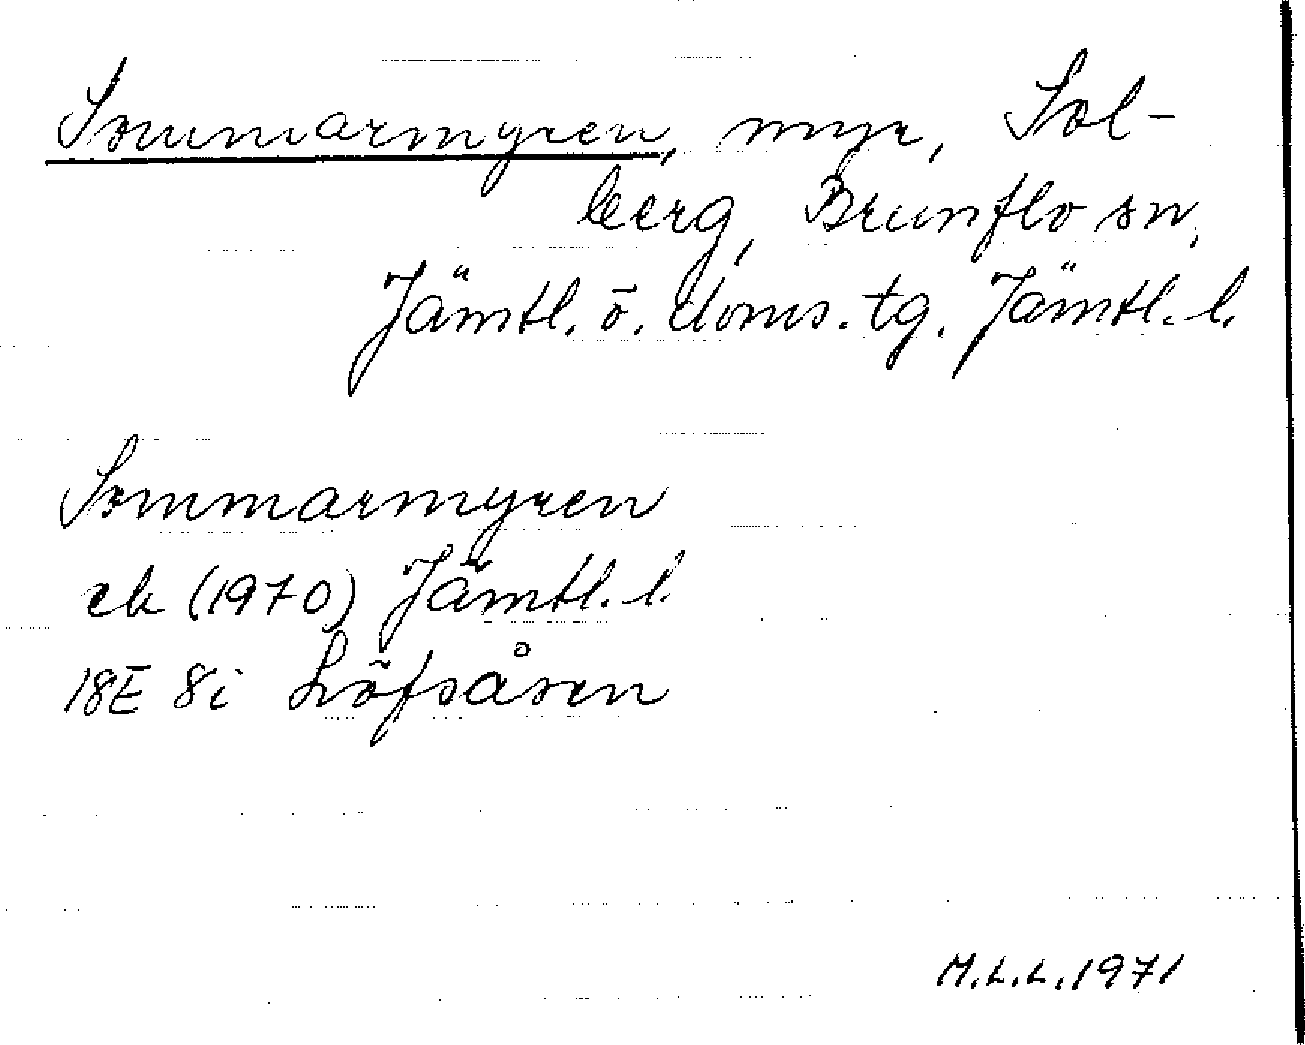 Sommarmyren, myr, Sol-
berg, Brunflo sn,
Jämtl. ö. doms. tg. Jämtl. l.
Sommarmyren
ek (1970) Jämtl. l.
18E 8i Lövsåsen
M.L.L. 1971